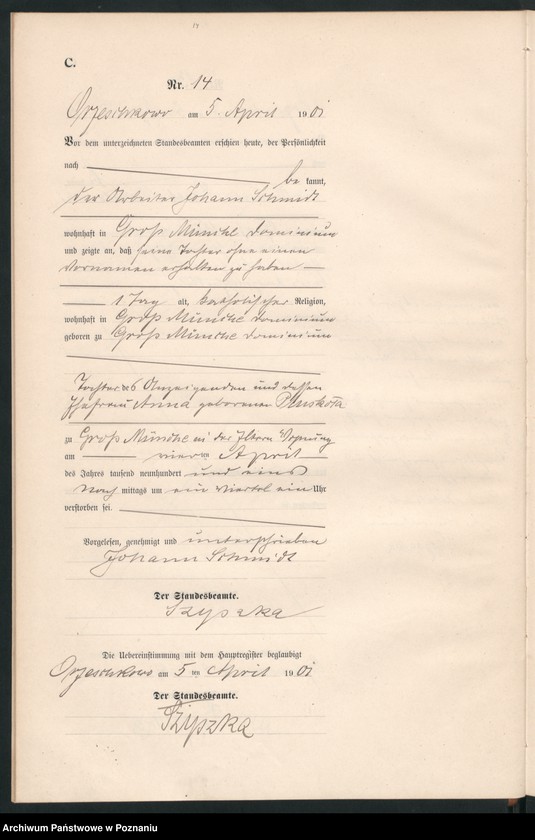 C.
Nr. 14
Orzeschkowo am 5. April 1901
Vor dem unterzeichneten Standesbeamten erschien heute, der Persönlichkeit
nach be kannt,
der Arbeiter Johann Schmidt
wohnhaft in Groß Münche Dominium
und zeigte an, daß seine Tochter ohne einen
Vornamen erhalten zu haben
1 Tag alt, katholischer Religion,
wohnhaft in Groß Münche Dominium
geboren zu Groß Münche Dominium
Tochter des Anzeigenden und dessen
Ehefrau Anna geborenen
zu Groß Münche in der Eltern Wohnung
am vierten April
des Jahres tausend neunhundert und eins
Nach mittags um ein Viertel ein Uhr
verstorben sei.
Vorgelesen, genehmigt und unterschrieben
Johann Schmidt
Der Standesbeamte.
Szypszka
Die Uebereinstimmung mit dem Hauptregister beglaubigt
Orzeschkowo am 5 ten April 1901
Der Standesbeamte.
Szypszka
Archiwum Państwowe w Poznaniu